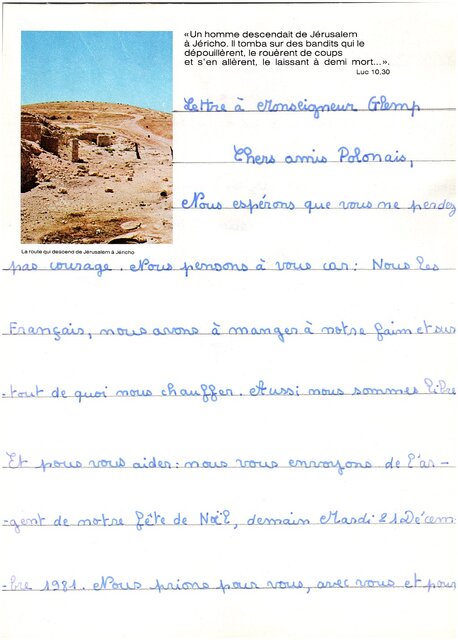 «Un homme descendait de Jérusalem
à Jéricho. Il tomba sur des bandits qui le
dépouillèrent, le rouèrent de coups
et s'en allèrent, le laissant à demi mort...».
Luc 10,30
La route qui descend de Jérusalem à Jéricho
Lettre à Monseigneur Glemp
Chers amis Polonais,
Nous espérons que vous ne perdez
pas courage. Nous pensons à vous car: Nous les
Français, nous avons à manger à notre faim et sur
-tout de quoi nous chauffer. Aussi nous sommes libre
Et pous vous aider: nous vous envoyons de l'ar-
-gent de notre fête de Noël, demain Mardi 21 Décem-
-bre 1981. Nous prions pour vous, avec vous et pour